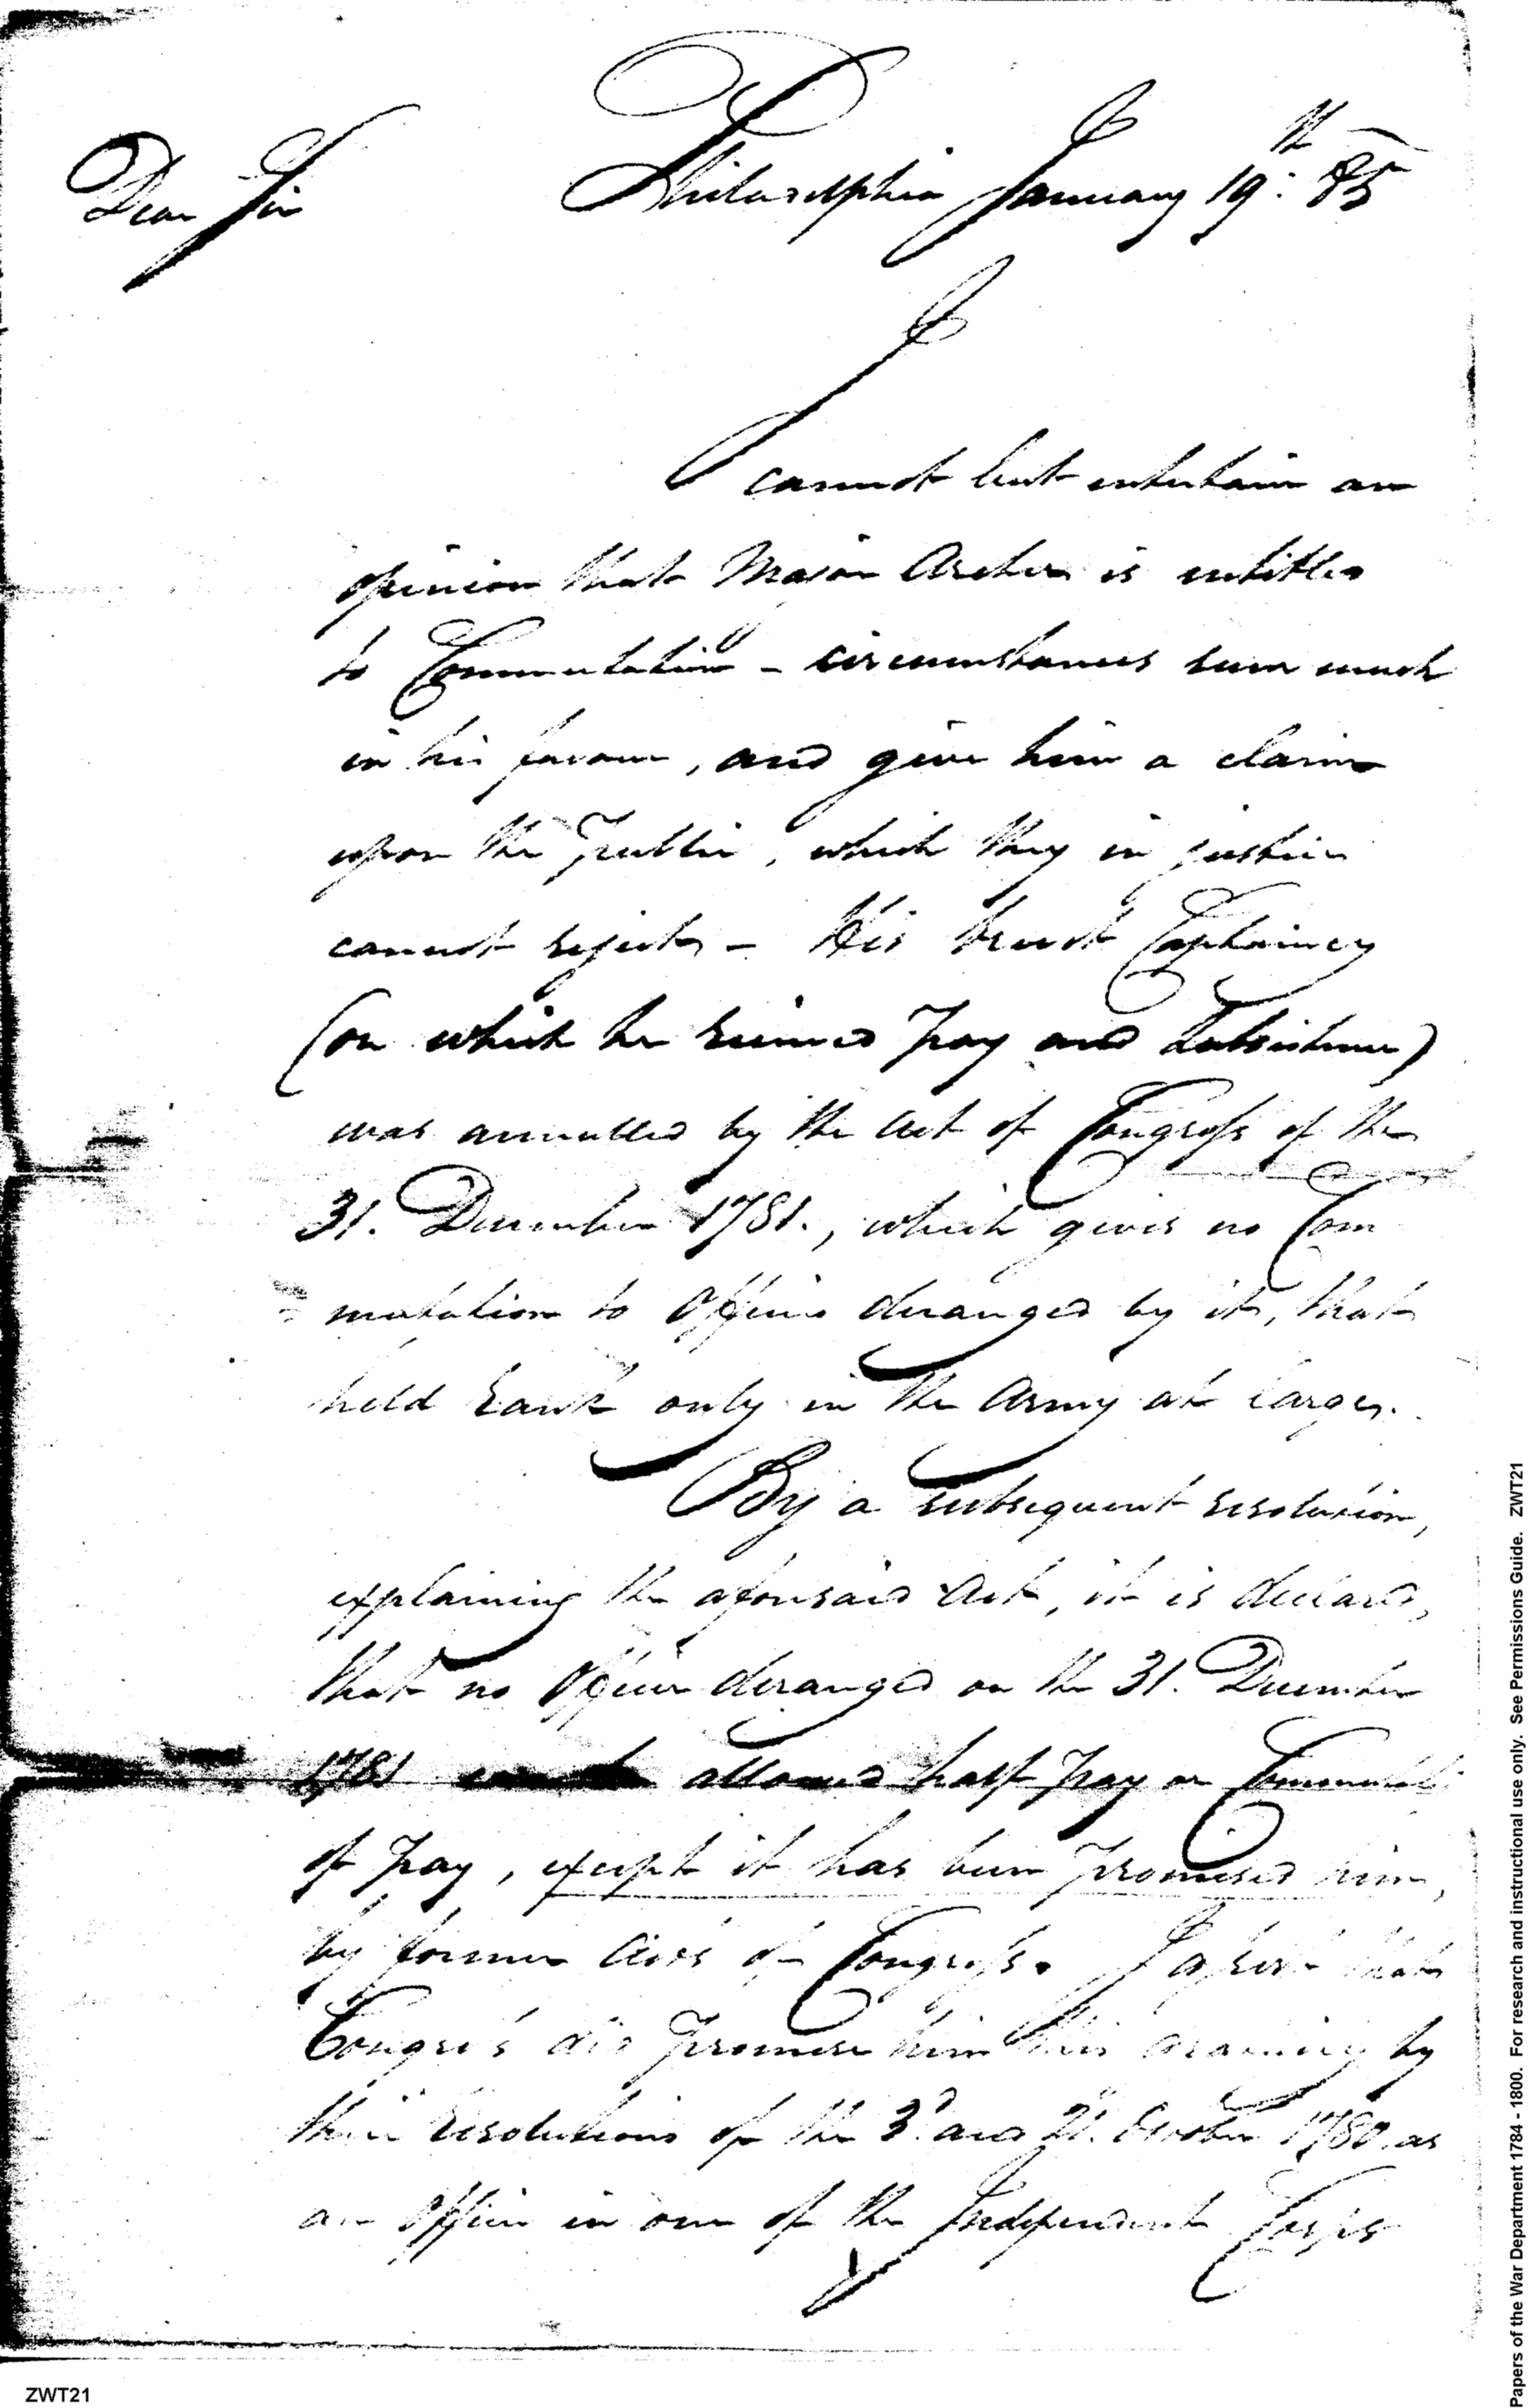 Dear Sir
Philadelphia January 19th. 85
I
cannot but entertain an
opinion that Major Archer is entitled
to Commutation – circumstances seem much
in his favour, and give him a claim
upon the Public, which they in justice
cannot reject – His brevet Captaincy
(on which he received Pay and Subsistence)
was annulled by the Act of Congress of the
31. December 1781., which gives no Com
= mutation to Officers deranged by it, that
held rank only in the Army at large.
By a subsequent resolution,
explaining the aforesaid Act, it is declared,
that no Officer deranged on the 31. December
1781 allowed half Pay or
of Pay, except it has been promised him,
by former Acts of Congress. I assert that
Congress did promise him this by
their resolutions of the 3d. and 21. October 1780. as
an Officer in one of the Independent Corps
ZWT21
Papers of the War Department 1784 - 1800. For research and instructional use only. See Permissions Guide. ZWT21